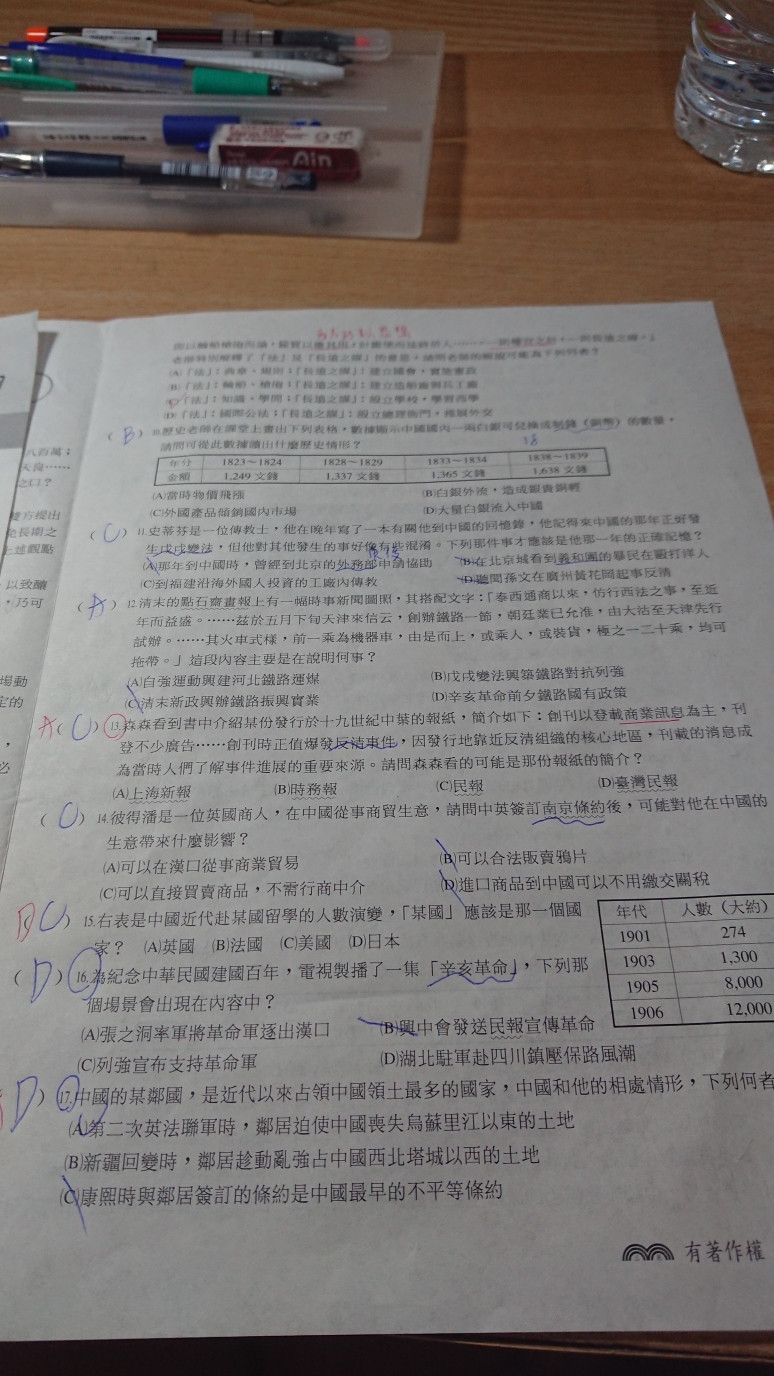 Ain
而以輪船槍砲而論
老師特別解釋了「法」及「長遠之謀」的意思,請問老師的解說可能為下列何者?
(A)「法」:典章、規則;「長遠之謀」:建立國會,實施憲政
(B)「法」:輪船、槍砲;「長遠之謀」:建造造船廠與兵工廠
(C)「法」:知識、學問;「長遠之謀」:設立學校,學習西學
(D)「法」:國際公法;「長遠之謀」:設立總理衙門,推展外交
(B) 10.歷史老師在課堂上畫出下列表格,數據顯示中國國內一兩白銀可兌換成制錢(銅幣)的數量,
請問可從此數據讀出什麼歷史情形? 18
年分 1823~1824 1828~1829 1833~1834 1838~1839
金額 1,249 文錢 1,337 文錢 1,365 文錢 1,638 文錢
(A)當時物價飛漲 (B)白銀外流,造成銀貴銅輕
(C)外國產品傾銷國內市場 (D)大量白銀流入中國
(C) 11.史蒂芬是一位傳教士,他在晚年寫了一本有關他到中國的回憶錄,他記得來中國的那年正好發
生戊戌變法,但他對其他發生的事好像有些混淆。下列那件事才應該是他那一年的正確記憶?
(A)那年到中國時,曾經到北京的外務部申請協助 (B)在北京城看到義和團的暴民在毆打洋人
(C)到福建沿海外國人投資的工廠內傳教 (D)聽聞孫文在廣州黃花岡起事反清
(A) 12.清末的點石齋畫報上有一幅時事新聞圖照,其搭配文字:「泰西通商以來,仿行西法之事,至近
年而益盛。……茲於五月下旬天津來信云,創辦鐵路一節,朝廷業已允准,由大沽至天津先行
試辦。……其火車式樣,前一乘為機器車,由是而上,或乘人,或裝貨,極之一二十乘,均可
拖帶。」這段內容主要是在說明何事?
(A)自強運動興建河北鐵路運煤 (B)戊戌變法興築鐵路對抗列強
(C)清末新政興辦鐵路振興實業 (D)辛亥革命前夕鐵路國有政策
A(C) 13.森森看到書中介紹某份發行於十九世紀中葉的報紙,簡介如下:創刊以登載商業訊息為主,刊
登不少廣告……創刊時正值爆發反清事件,因發行地靠近反清組織的核心地區,刊載的消息成
為當時人們了解事件進展的重要來源。請問森森看的可能是那份報紙的簡介?
(A)上海新報 (B)時務報 (C)民報 (D)臺灣民報
(C) 14.彼得潘是一位英國商人,在中國從事商貿生意,請問中英簽訂南京條約後,可能對他在中國的
生意帶來什麼影響?
(A)可以在漢口從事商業貿易 (B)可以合法販賣鴉片
(C)可以直接買賣商品,不需行商中介 (D)進口商品到中國可以不用繳交關稅
D(C) 15.右表是中國近代赴某國留學的人數演變,「某國」應該是那一個國
家? (A)英國 (B)法國 (C)美國 (D)日本
年代 人數(大約)
1901 274
1903 1,300
1905 8,000
1906 12,000
(D) 16.為紀念中華民國建國百年,電視製播了一集「辛亥革命」,下列那
個場景會出現在內容中?
(A)張之洞率軍將革命軍逐出漢口 (B)興中會發送民報宣傳革命
(C)列強宣布支持革命軍 (D)湖北駐軍赴四川鎮壓保路風潮
D) 17.中國的某鄰國,是近代以來占領中國領土最多的國家,中國和他的相處情形,下列何者
(A)第二次英法聯軍時,鄰居迫使中國喪失烏蘇里江以東的土地
(B)新疆回變時,鄰居趁動亂強占中國西北塔城以西的土地
(C)康熙時與鄰居簽訂的條約是中國最早的不平等條約
有著作權
八百萬;
天良……
之口?
雙方提出
免長期之
上述觀點
,以致釀
,乃可
場動
定的
,
必